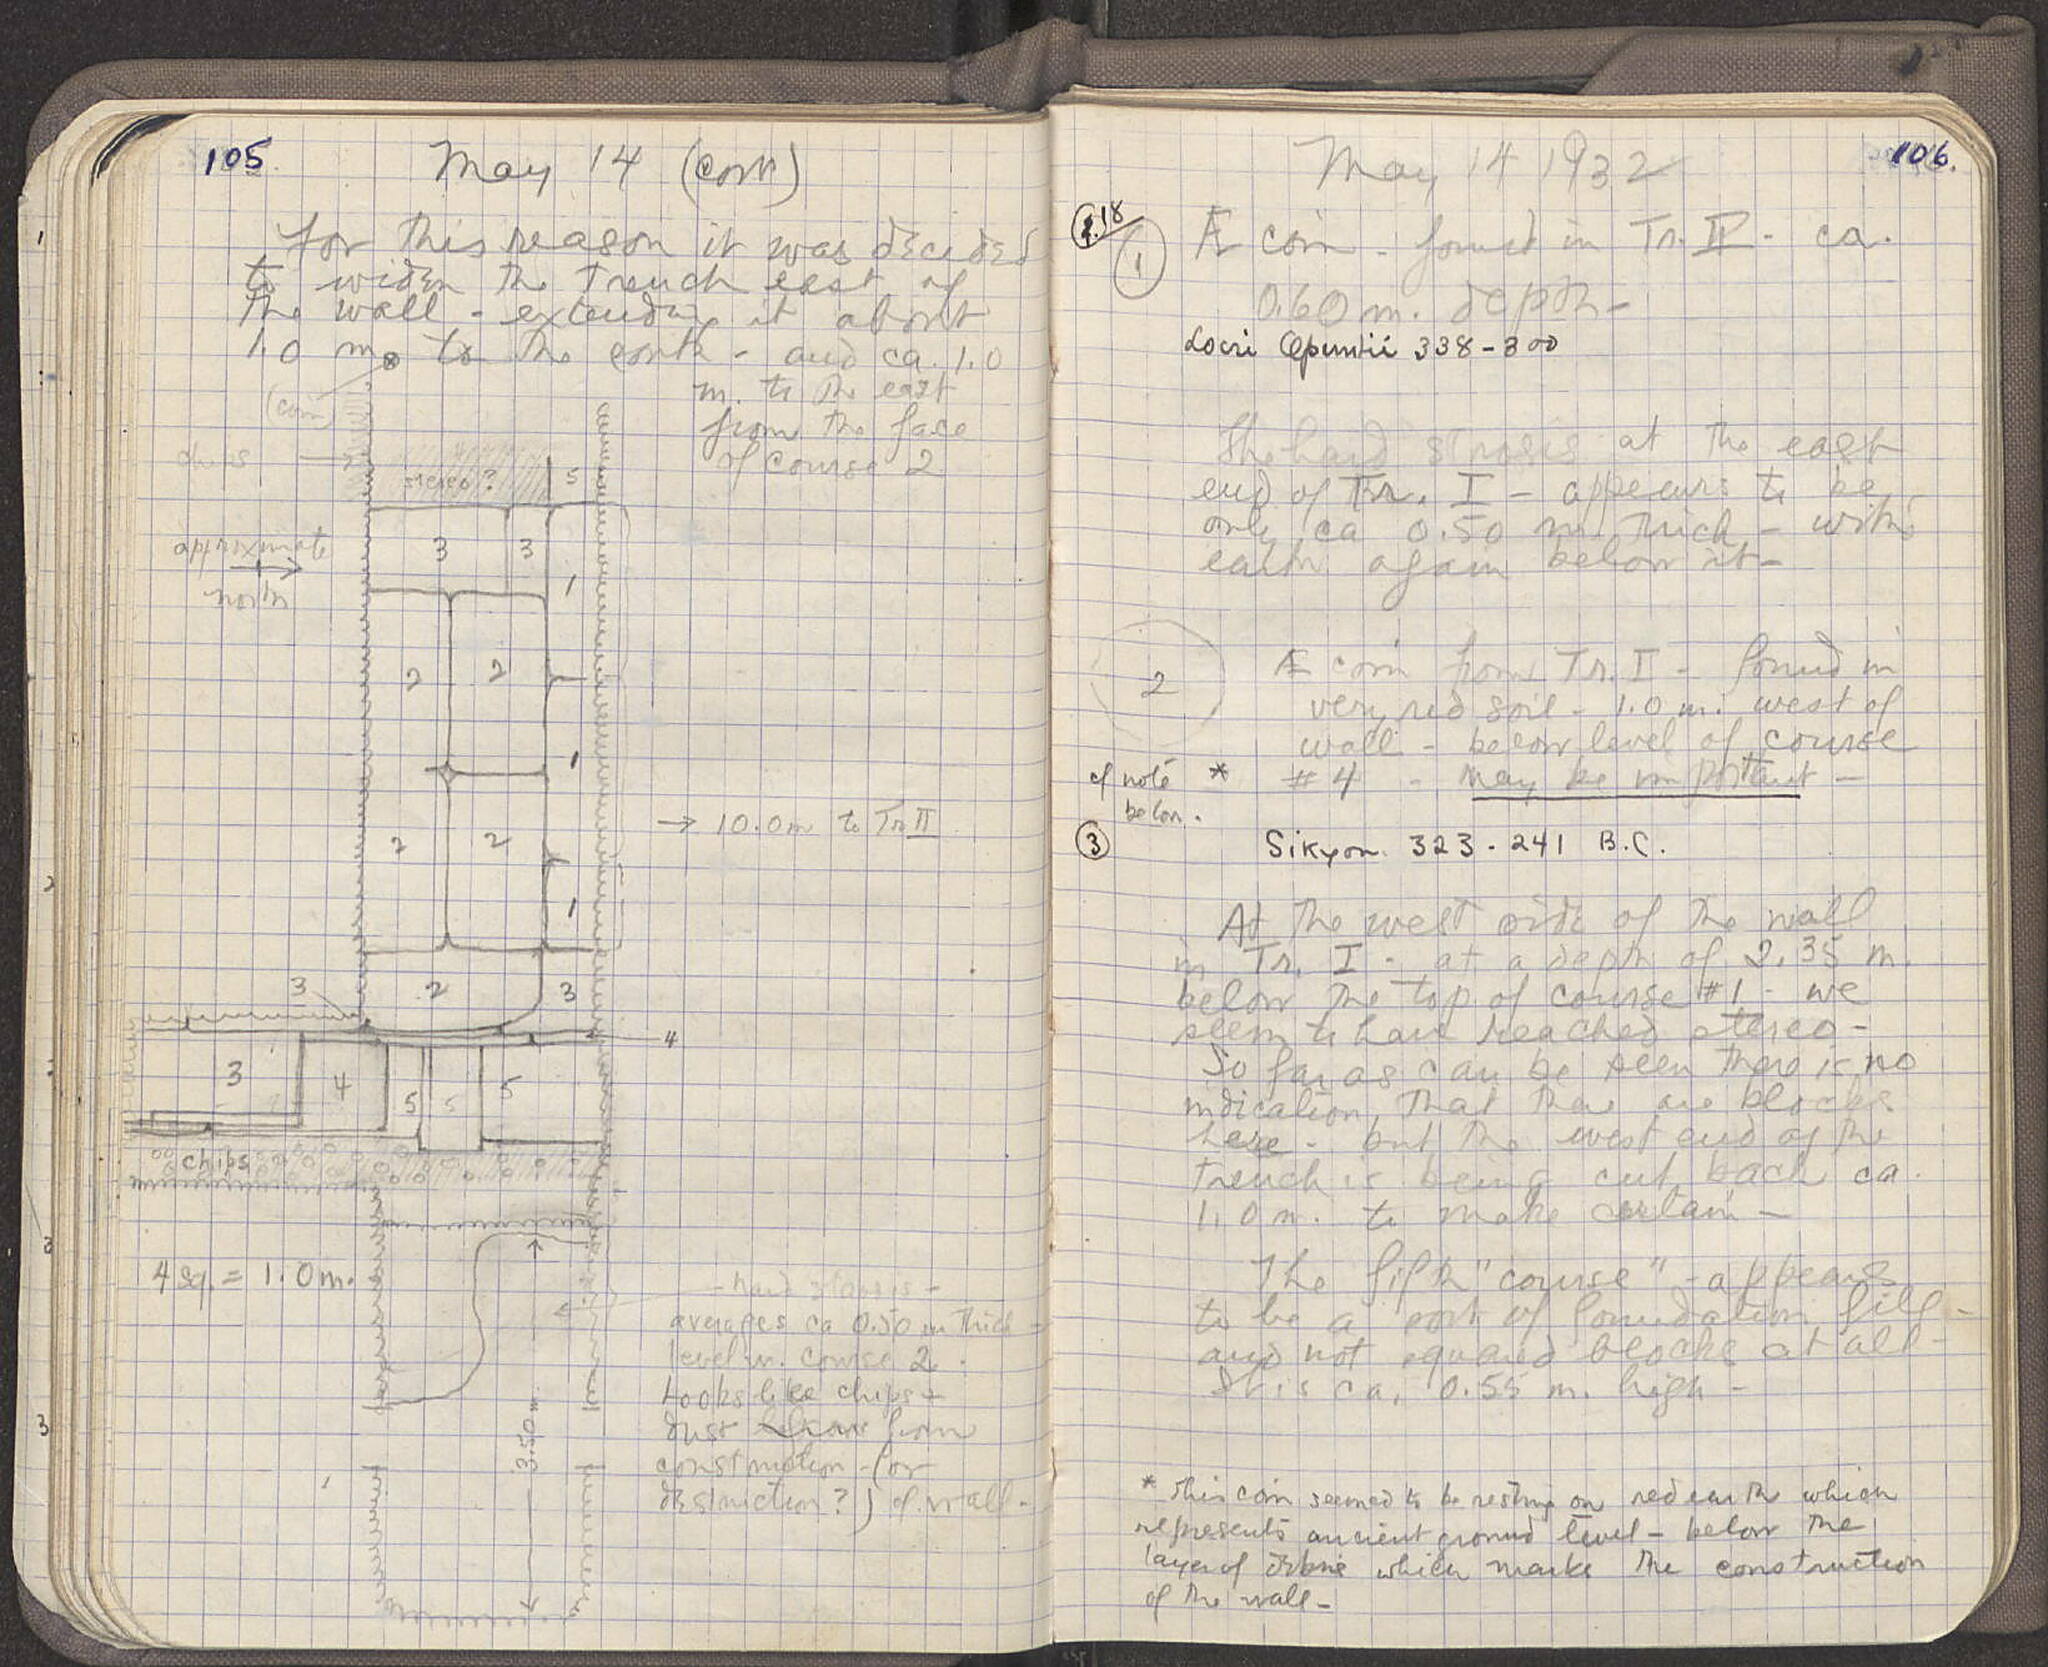 105
May 14 (con)
for this reason it was decided
to widen the trench east of
the wall - extending it about
1.0 m. to the north - and ca. 1.0
m. to the east
from the face
of course 2
(coin)
stereo ?
5
3
3
1
approximate
north
2
2
1
2
2
1
→ 10.0 m to Tr II
3
2
3
4
3
4
5
5
5
chips
4 sq. = 1.0 m.
3.50 m
- hard stosis -
averages ca 0.50 m thick -
level w. course 2.
Looks like chips +
dust from
construction - (or
destruction ?) of wall -
106.
May 14 1932
18
1
Æ coin - found in Tr. II - ca.
0.60 m. depth -
Locri Opuntii 338-300
The hard strosis at the east
end of Tr. I - appears to be
only ca 0.50 m. thick - with
earth again below it -
2
Æ coin from Tr. I - found in
very red soil - 1.0 m. west of
wall - below level of course
cf note * # 4 - may be important -
below.
3 Sikyon 323-241 B.C.
At the west side of the wall
in Tr. I - at a depth of 2.35 m.
below the top of course #1 - we
seem to have reached stereo -
So far as can be seen there is no
indication that there are blocks
here - but the west end of the
trench is being cut back ca.
1.0 m. to make certain -
The fifth "course" - appears
to be a sort of foundation fill -
and not squared blocks at all -
It is ca. 0.55 m. high -
* This coin seemed to be resting on red earth which
represents ancient ground level - below the
layer of debris which marks the construction
of the wall -